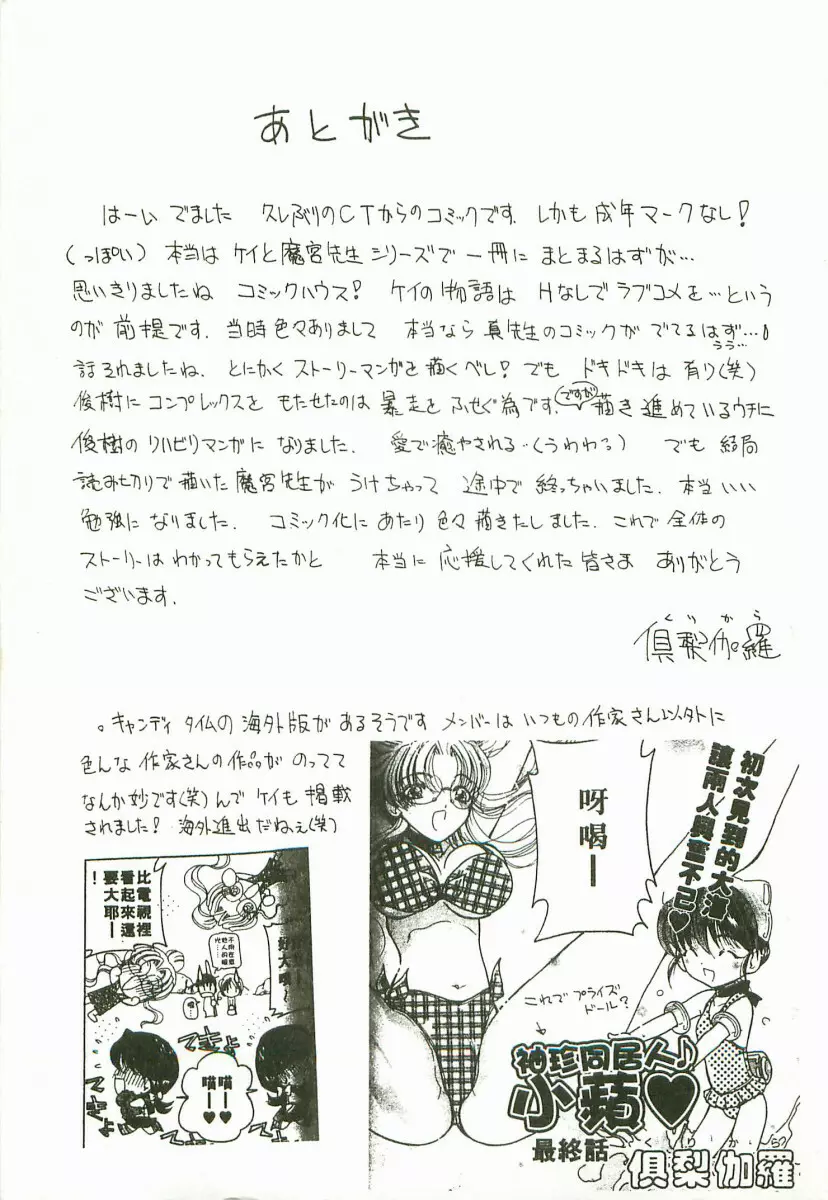 あとがき
はーい でました 久しぶりのCTからのコミックです. しかも成年マークなし!
(っぽい) 本当は ケイと魔宮先生シリーズで 一冊に まとまるはずが…
思いきりましたね コミックハウス! ケイの物語は Hなしでラブコメを…という
のが 前提です. 当時色々ありまして 本当なら 真先生のコミックが でてるはず…
うう…
話それましたね. とにかく ストーリーマンガを描くべし! でも ドキドキは 有り(笑)
俊樹に コンプレックスを もたせたのは 暴走を ふせぐ為です. ですが 描き進めているウチに
俊樹の リハビリマンガに なりました. 愛で癒やされる‥(うわわる) でも 結局
読み切りで描いた 魔宮先生が うけちゃって 途中で 終っちゃいました. 本当いい
勉強になりました. コミック化にあたり 色々描きたしました. これで 全体の
ストーリーは わかってもらえたかと 本当に 応援してくれた 皆さま ありがとう
ございます.
くりから
倶梨伽羅
。キャンディ タイムの 海外版が あるそうです メンバーは いつもの 作家さん以外に
色んな 作家さんの作品が のってて
なんか妙です(笑) んで ケイも 掲載
されました! 海外進出だねぇ(笑)
初次見到的大海
讓兩人興奮不已♥
呀喝ー
これで プライズ
ドール?
袖珍同居人♪
小蘋♥
最終話
くりから
倶梨伽羅
比電視裡
看起來還
要大耶ー
!
好大哦ー
てきょ
てきょ
てきょ
喵ー♥
喵ー♥